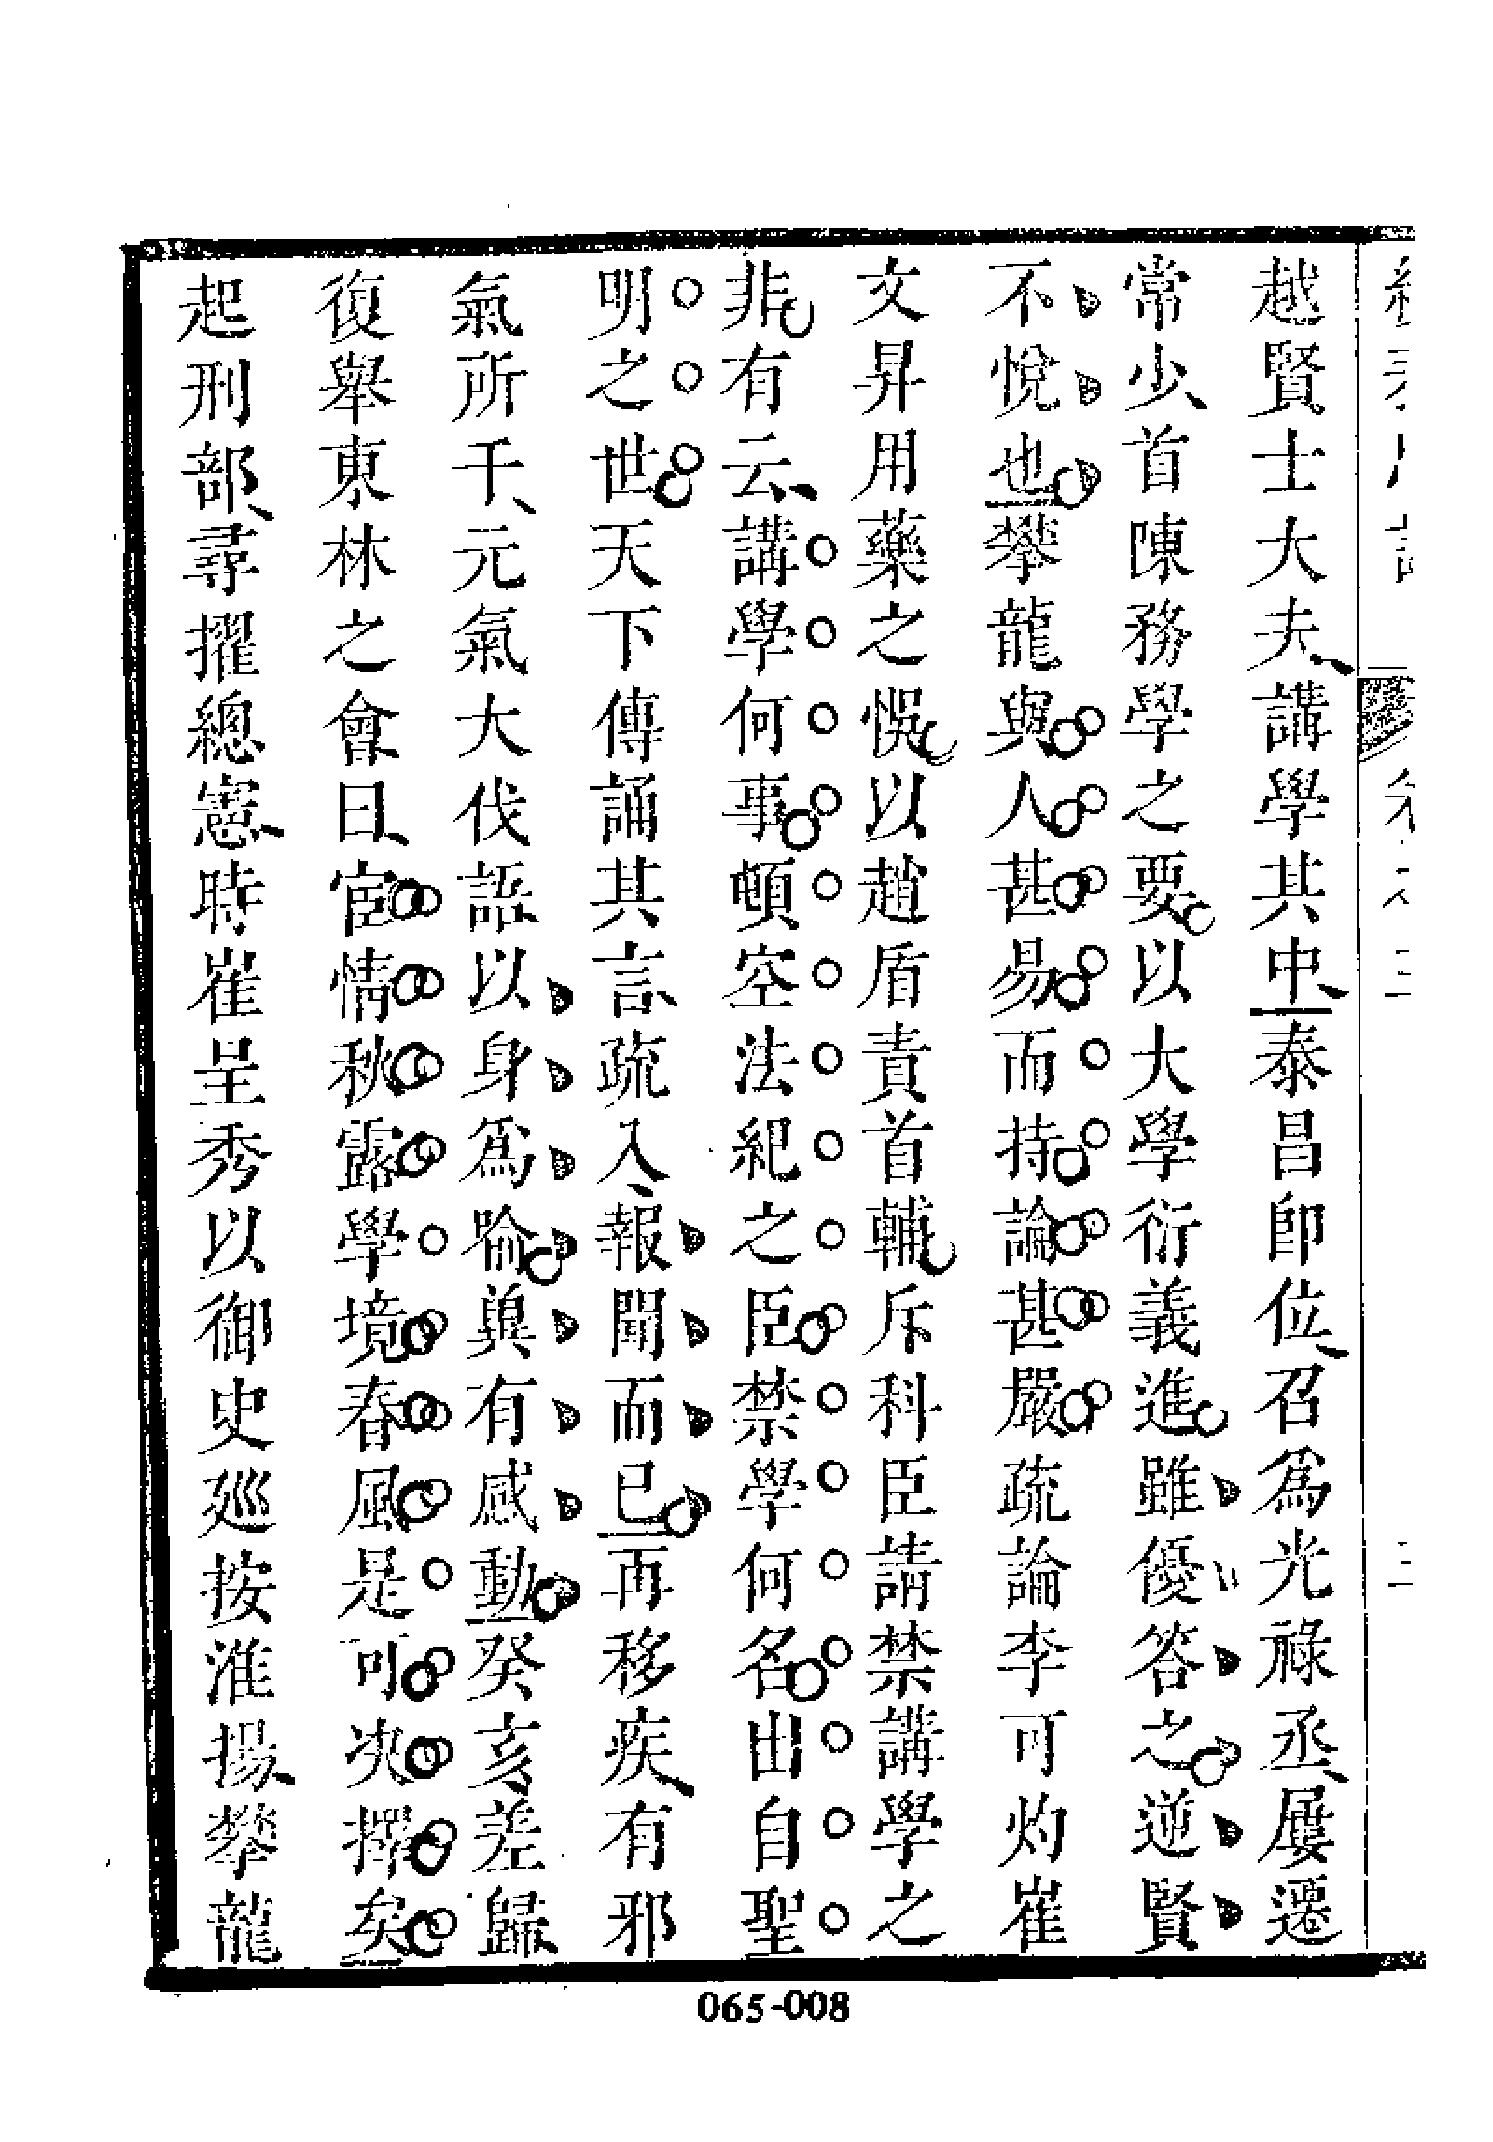 越賢士大夫講學其中泰昌卽位召爲光祿丞屢遷
常少首陳務學之要以大學衍義進雖優答之逆賢
不悅也攀龍與人甚易而持論甚嚴疏論李可灼崔
文昇用藥之悞以趙盾責首輔斥科臣請禁講學之
非有云講學何事頓空法紀之臣禁學何名出自聖
明之世天下傳誦其言疏入報聞而已再移疾有邪
氣所干元氣大伐語以身爲喻冀有感動癸亥差歸
復舉東林之會曰宦情秋露學境春風是可决擇矣
起刑部尋擢總憲時崔呈秀以御史廵按淮揚攀龍
065-008